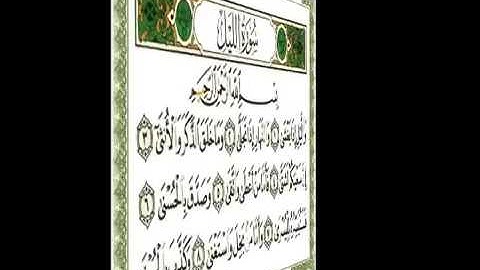 سُورَةُ اللَّيْلِ
بِسْمِ اللَّهِ الرَّحْمَٰنِ الرَّحِيمِ
وَاللَّيْلِ إِذَا يَغْشَىٰ ١ وَالنَّهَارِ إِذَا تَجَلَّىٰ ٢ وَمَا خَلَقَ الذَّكَرَ وَالْأُنثَىٰ ٣
إِنَّ سَعْيَكُمْ لَشَتَّىٰ ٤ فَأَمَّا مَنْ أَعْطَىٰ وَاتَّقَىٰ ٥ وَصَدَّقَ بِالْحُسْنَىٰ ٦
فَسَنُيَسِّرُهُ لِلْيُسْرَىٰ ٧ وَأَمَّا مَن بَخِلَ وَاسْتَغْنَىٰ ٨ وَكَذَّبَ بِالْحُسْنَىٰ